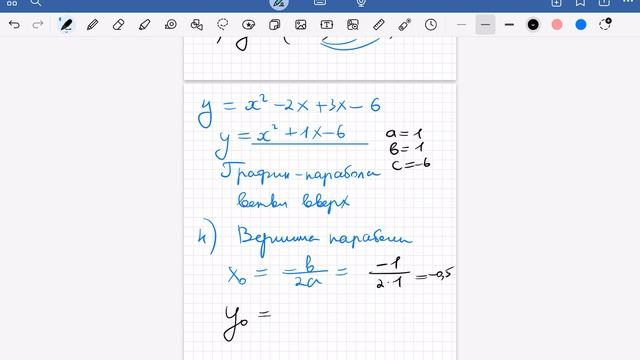 y = x² - 2x + 3x - 6
y = x² + 1x - 6
a = 1
в = 1
c = -6
График - парабола
ветви вверх
4) Вершина параболы
x₀ = -в/2a = -1/2·1 = -0,5
y₀ =